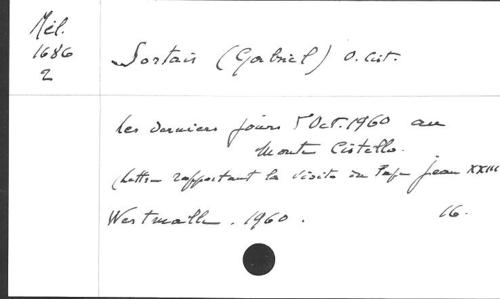 Mél.
1686
2
Sortais (Gabriel) O. Cist.
Les derniers jours 5 Oct. 1960 au
Monte Cistello.
(Lettre rapportant la visite du Pape Jean XXIII
Westmalle. 1960. 16.